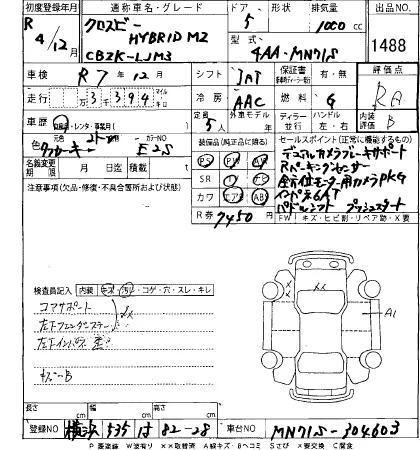 初度登録年月 通称車名・グレード ドア 形状 排気量 出品NO
R 4/12月 クロスビー HYBRID MZ 5 1000 cc
CBZK-LJM3 型式 4AA-MN71S 1488
車検 R7年12月 シフト IAT 保証書 有・無 評価点
走行 万3千394 マイル キロ 冷房 AAC 燃料 G RA
車歴 自家用・レンタ・事業用( ) 定員 5人 外車モデル ディーラー 並行 ハンドル 左 右 内装評価 B
色 元色 2トーン カラーNO E2S 装備品(純正品に限る) セールスポイント(正常に機能するもの)
PS PW デュアルカメラブレーキサポート
名義変更期限 月 日迄 積載 t SR Rパーキングセンサー
注意事項(欠品・修復・不具合箇所および状態) カワ AB 全方位モニター用カメラPKG
R券 7450 パドルシフト プッシュスタート
FW キズ・ヒビ割・リペア跡・X要
検査員記入 内装 キズ・汚レ・コゲ・穴・スレ・キレ
コアサポート
A1
長さ cm 幅 cm 高さ cm
登録NO 横浜 535 は 82-28 車台NO MN71S-304603
P要塗装 W塗有り XX取替済 A線キズ・Bヘコミ Sさび X要交換 C腐食